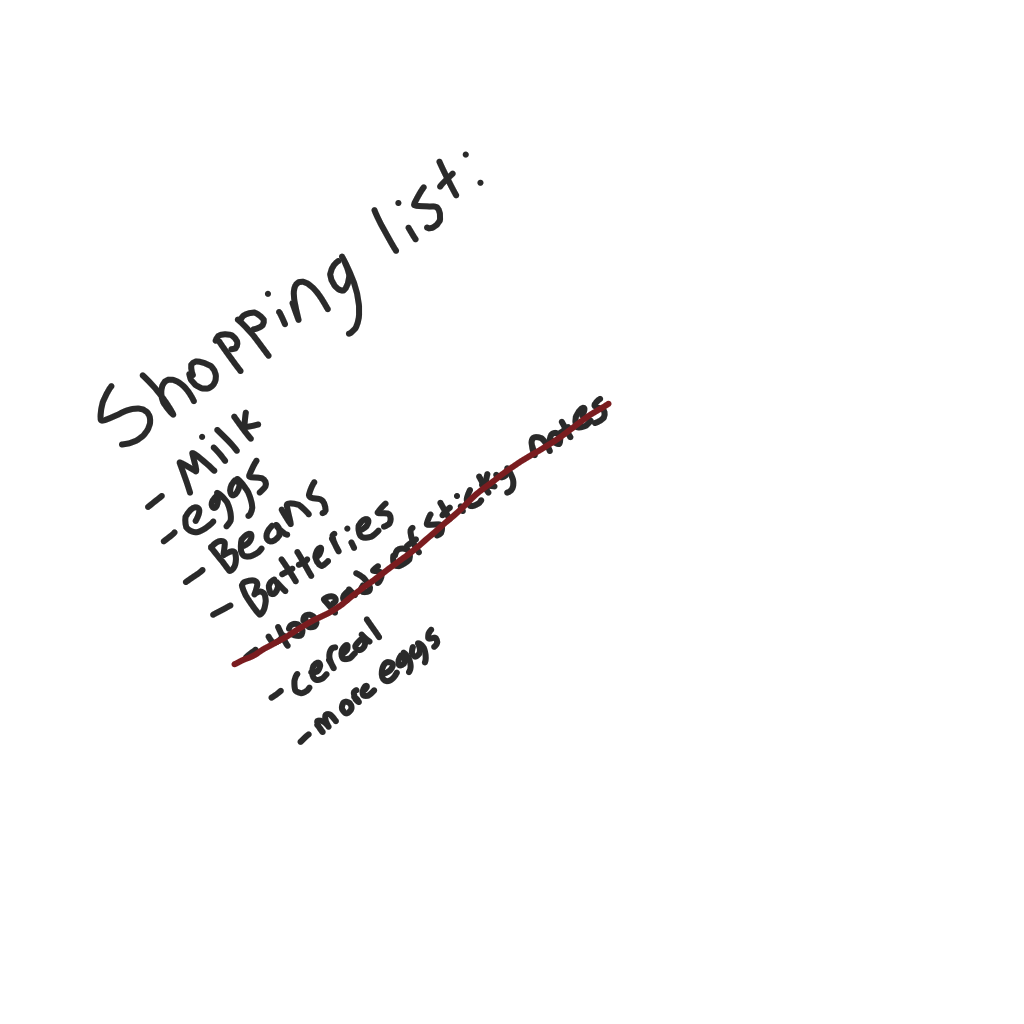 Shopping list:
- Milk
- eggs
- Beans
- Batteries
- 400 Pads of sticky notes
- cereal
- more eggs